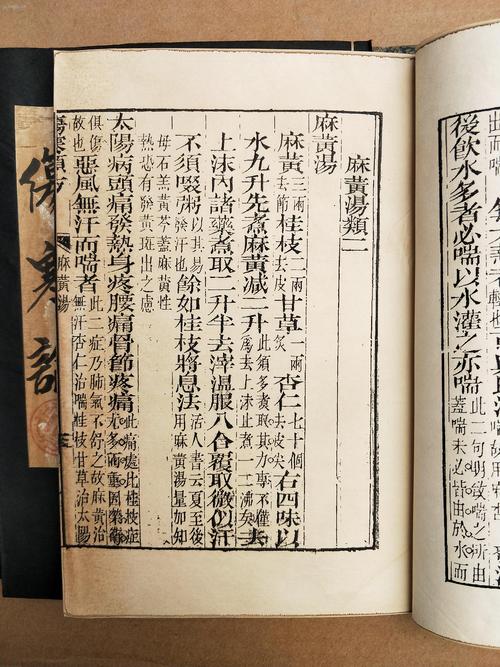 後飲水多者必喘以水灌之亦喘此一句明致喘之由蓋喘未必皆由於水而
麻黃湯類二
麻黃湯
麻黃三兩去節桂枝二兩去皮甘草一兩炙杏仁七十個去皮尖右四味以
水九升先煮麻黃減二升此須多煮取其力專不僅去上沫止煮一二沸矣去
上沫內諸藥煮取二升半去滓溫服八合覆取微似汗
不須啜粥以其易發汗也餘如桂枝將息法活人書云夏至後用麻黃湯量加知
母石羔黃芩蓋麻黃性熱恐有發黃斑出之慮
太陽病頭痛發熱身疼腰痛骨節疼痛此痛處比桂枝症尤多而重因榮衛
俱傷故也惡風無汗而喘者此二症乃肺氣不舒之故麻黃治無汗杏仁治喘桂枝甘草治太陽
傷寒類方
麻黃湯
傷寒論